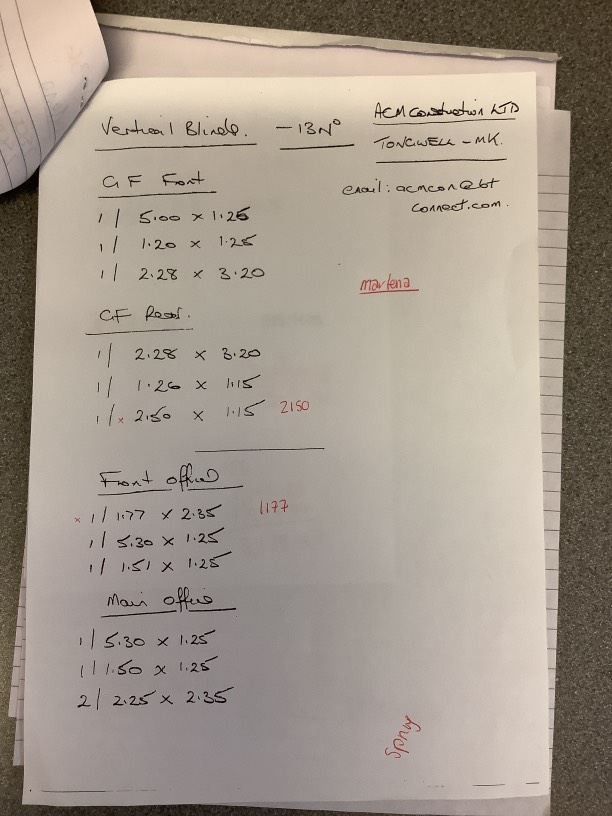 Vertical Blinds. - 13No
ACM Construction LTD
TONGWELL - MK.
email: acmcon@bt
connect.com.
GF Front
1/ 5.00 x 1.25
1/ 1.20 x 1.25
1/ 2.28 x 3.20
marlena
GF Rear.
1/ 2.28 x 3.20
1/ 1.26 x 1.15
1/ x 2.50 x 1.15 2150
Front office
x 1/ 1.77 x 2.35 1177
1/ 5.30 x 1.25
1/ 1.51 x 1.25
Main office
1/ 5.30 x 1.25
1/ 1.50 x 1.25
2/ 2.25 x 2.35